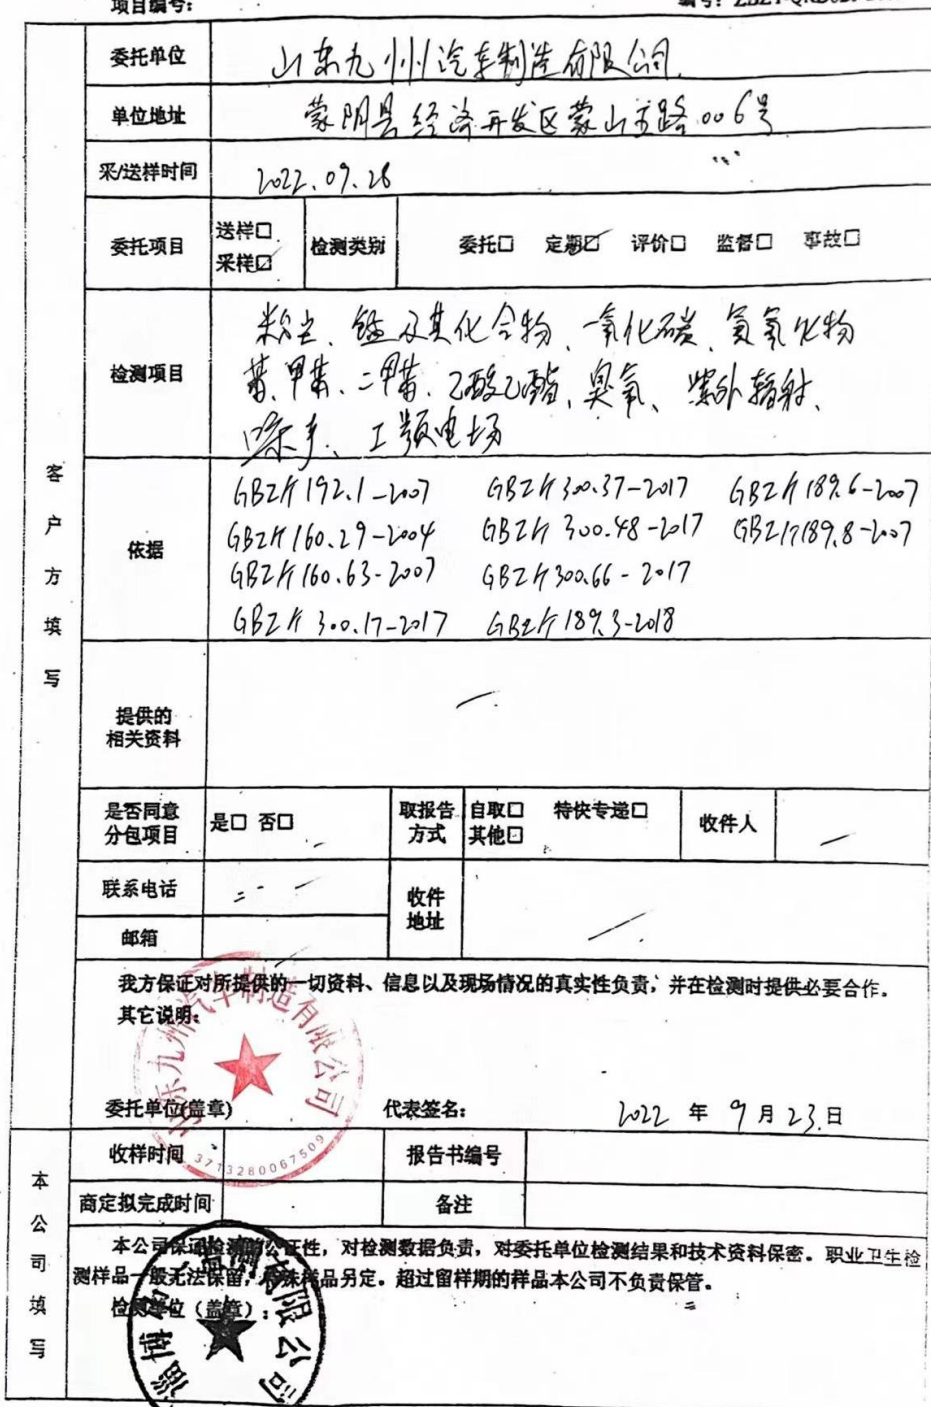 项目编号:
委托单位 山东九州汽车制造有限公司
单位地址 蒙阴县经济开发区蒙山路006号
采/送样时间 2022.09.28
委托项目 送样☐ 采样☑ 检测类别 委托☐ 定期☑ 评价☐ 监督☐ 事故☐
粉尘、锰及其化合物、一氧化碳、氮氧化物
检测项目 苯、甲苯、二甲苯、乙酸乙酯、臭氧、紫外辐射、
噪声、工频电场
GBZ/T 192.1-2007 GBZ/T 300.37-2017 GBZ/T 189.6-2007
依据 GBZ/T 160.29-2004 GBZ/T 300.48-2017 GBZ/T 189.8-2007
GBZ/T 160.63-2007 GBZ/T 300.66-2017
GBZ/T 300.17-2017 GBZ/T 189.3-2018
客户方填写
提供的
相关资料
是否同意
分包项目 是☐ 否☐ 取报告
方式 自取☐ 特快专递☐
其他☐ 收件人
联系电话 收件
地址
邮箱
我方保证对所提供的一切资料、信息以及现场情况的真实性负责,并在检测时提供必要合作。
其它说明:
山东九州汽车制造有限公司
3713280067509
委托单位(盖章) 代表签名: 2022 年 9 月 23 日
收样时间 报告书编号
商定拟完成时间 备注
本公司填写
本公司保证检测的公正性,对检测数据负责,对委托单位检测结果和技术资料保密。职业卫生检
测样品一般无法保留,特殊样品另定。超过留样期的样品本公司不负责保管。
检测单位(盖章):
淄博 检测有限公司